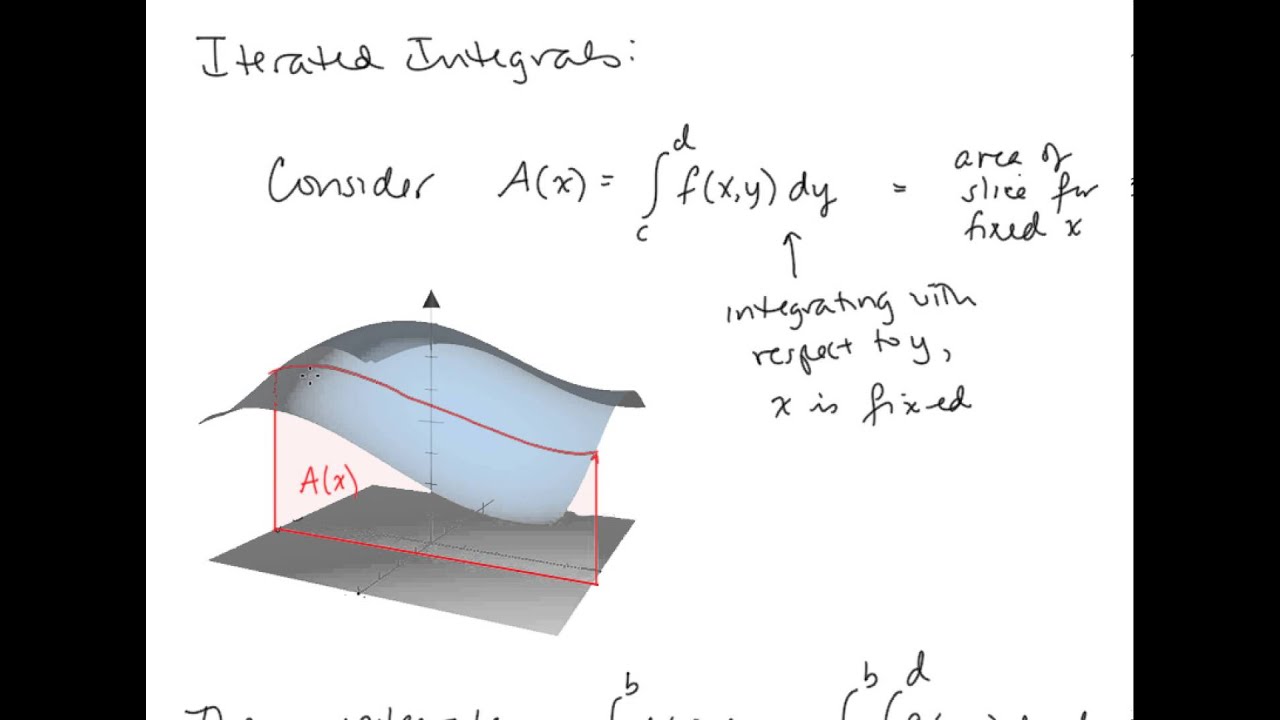 Iterated Integrals:
Consider A(x) = ∫_c^d f(x,y) dy = area of
slice for
fixed x
↑
integrating with
respect to y,
x is fixed
A(x)
b b d